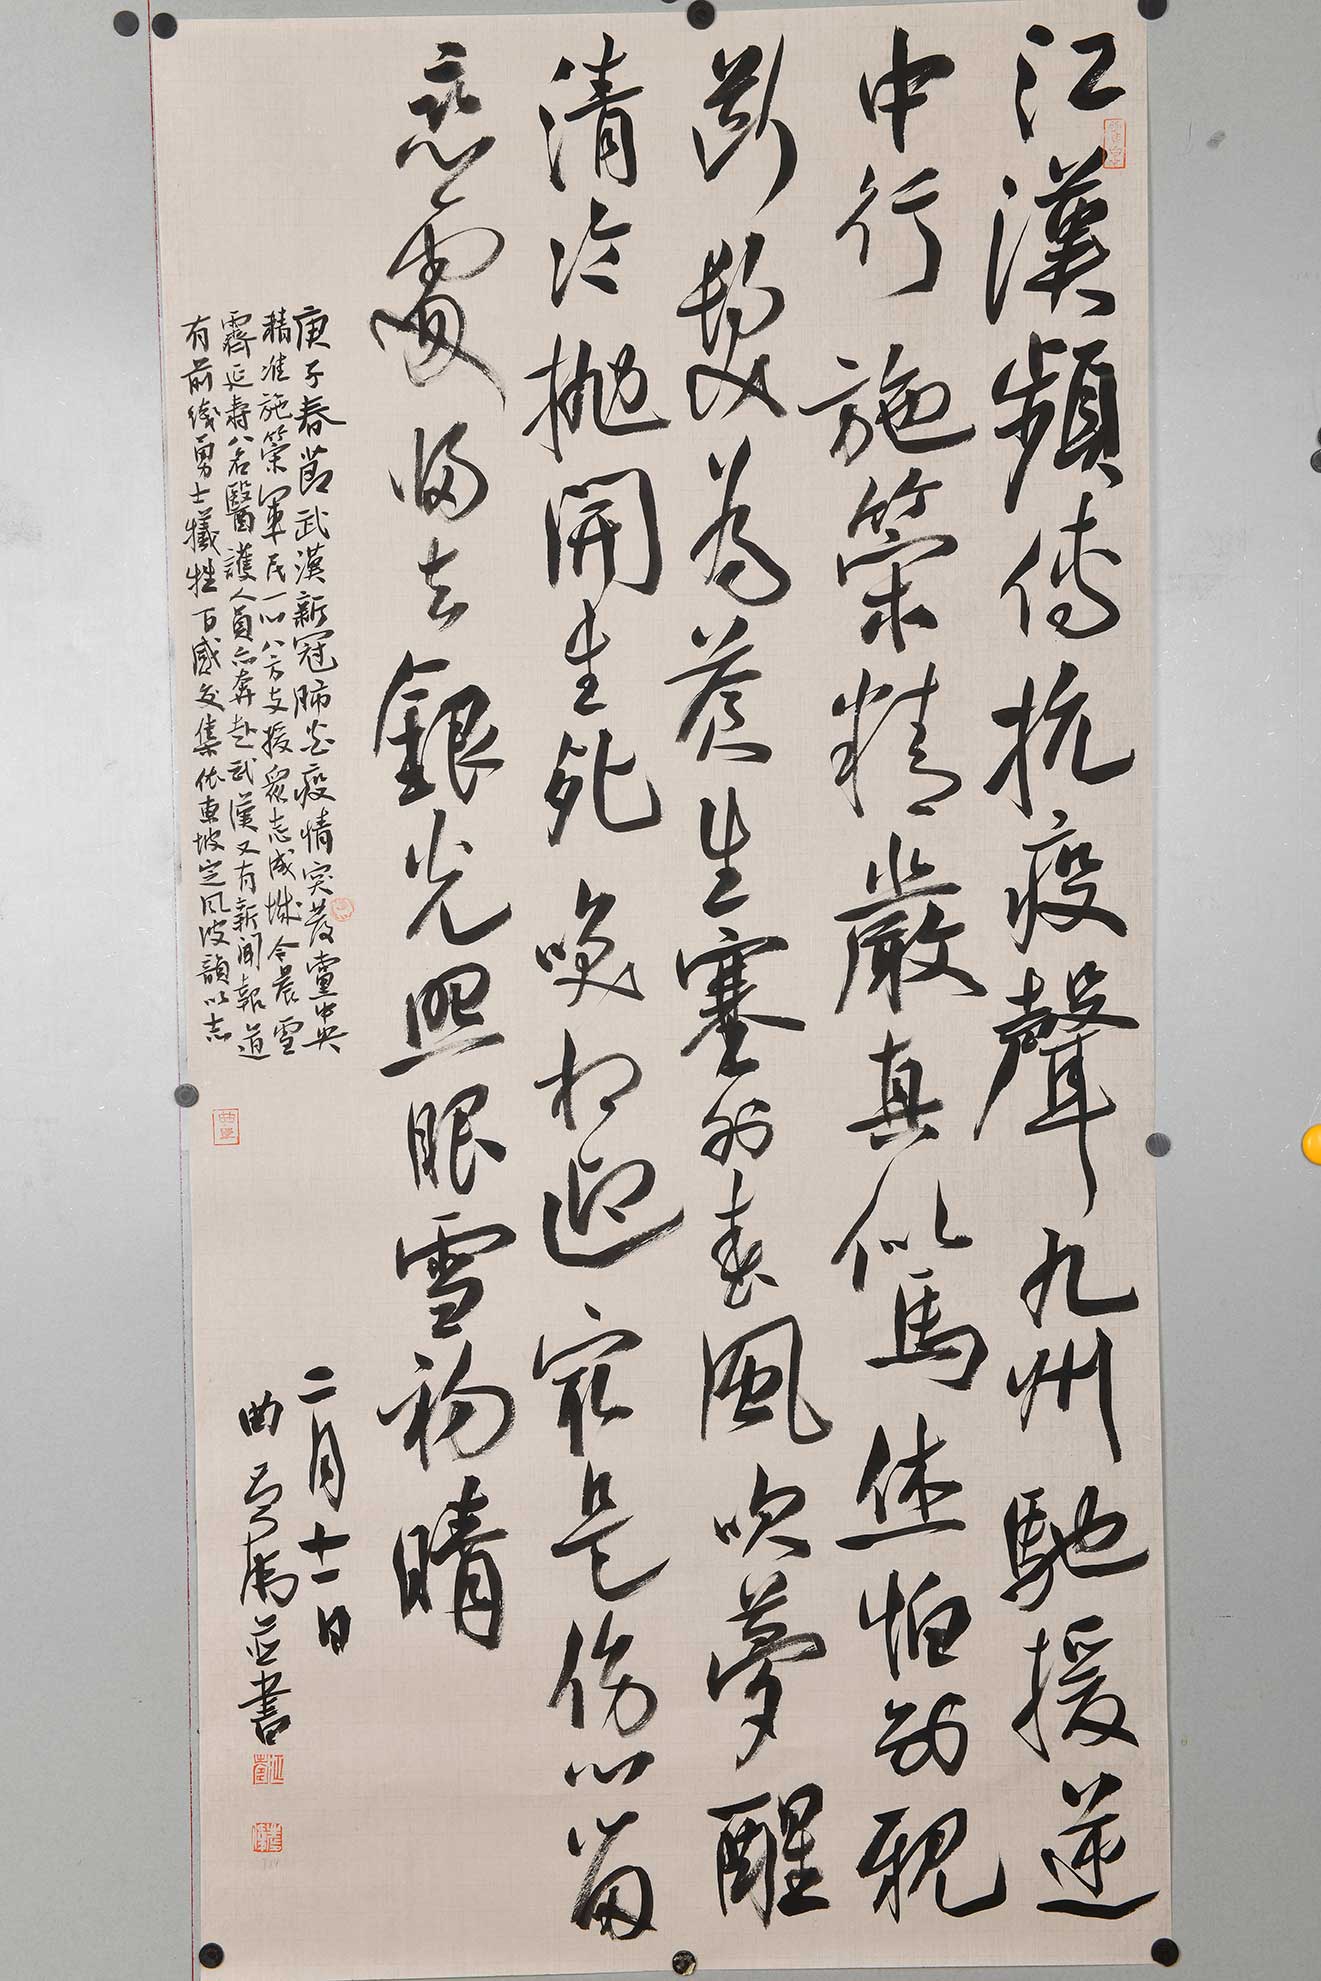 江漢頻傳抗疫聲九州馳援逆
中行施策精嚴真似馬休怕別親
斷髮為蒼生塞外春風吹夢醒
清冷拋開生死喚相迎最是傷心留
恋處歸去銀光照眼雪初晴
庚子春節武漢新冠肺炎疫情突發黨中央
精準施策軍民一心八方支援眾志成城今晨雪
霽延壽八名醫護人員亦奔赴武漢又有新聞報道
有前線勇士犧牲百感交集依東坡定風波韻以志
二月十一日
曲 並書